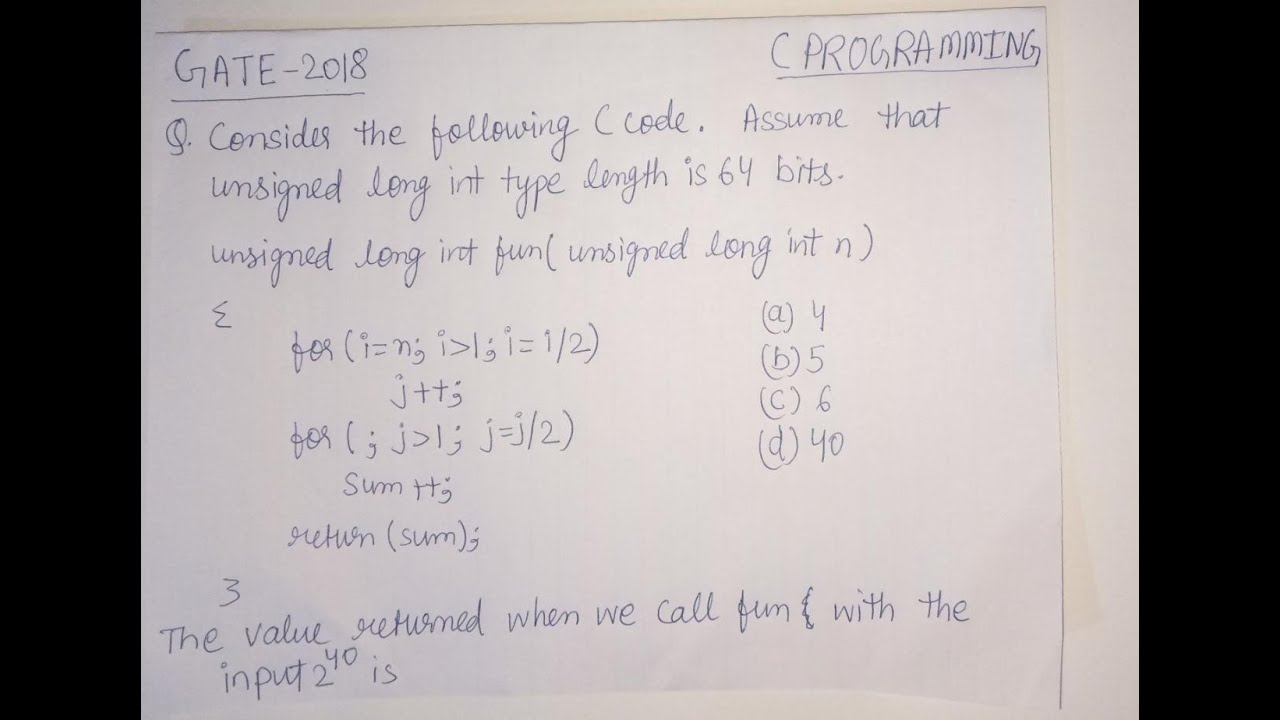 GATE-2018
C PROGRAMMING
Q. Consider the following C code. Assume that
unsigned long int type length is 64 bits.
unsigned long int fun( unsigned long int n)
{
for (i=n; i>1; i= i/2)
j++;
for ( ; j>1; j=j/2)
Sum++;
return (sum);
}
(a) 4
(b) 5
(c) 6
(d) 40
The value returned when we call fun with the
input 2⁴⁰ is